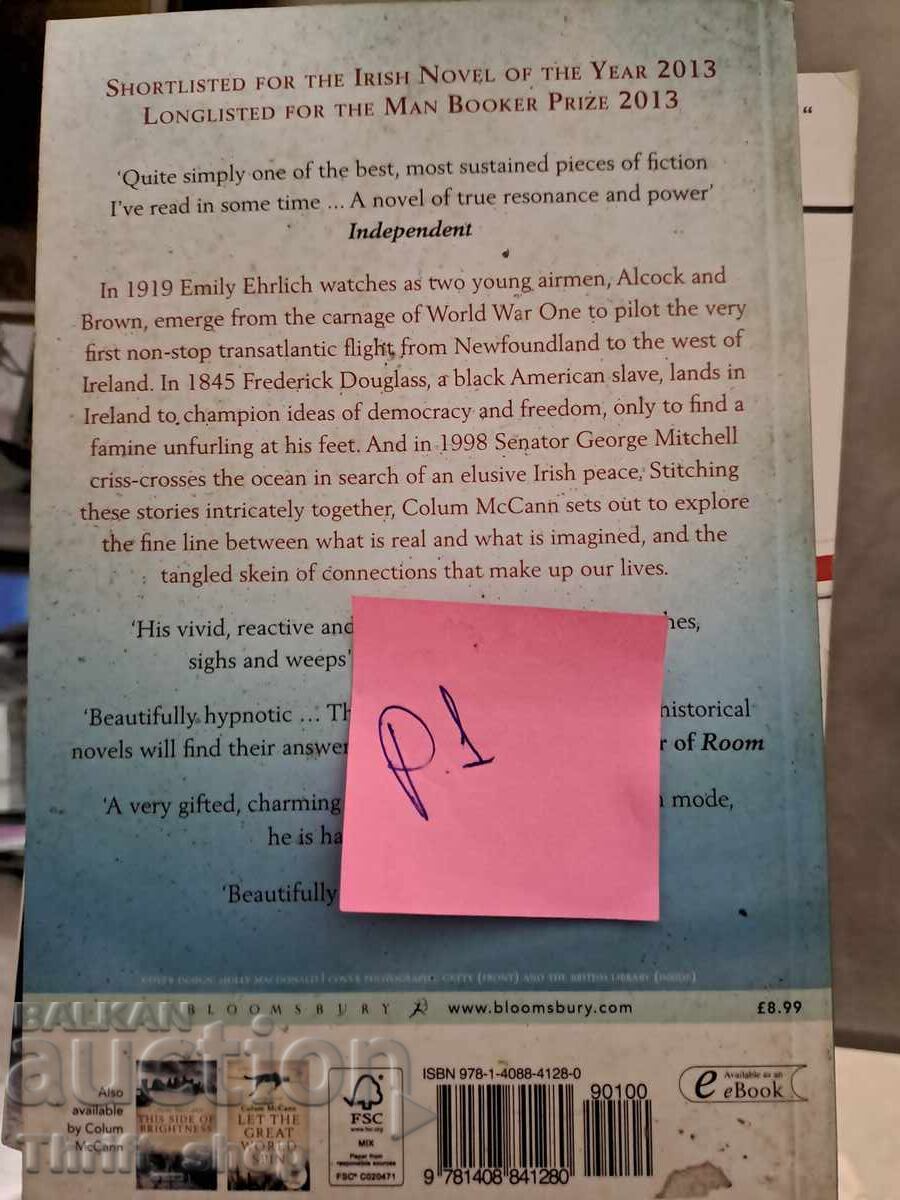 SHORTLISTED FOR THE IRISH NOVEL OF THE YEAR 2013
LONGLISTED FOR THE MAN BOOKER PRIZE 2013
“
‘Quite simply one of the best, most sustained pieces of fiction
I’ve read in some time ... A novel of true resonance and power’
Independent
In 1919 Emily Ehrlich watches as two young airmen, Alcock and
Brown, emerge from the carnage of World War One to pilot the very
first non-stop transatlantic flight from Newfoundland to the west of
Ireland. In 1845 Frederick Douglass, a black American slave, lands in
Ireland to champion ideas of democracy and freedom, only to find a
famine unfurling at his feet. And in 1998 Senator George Mitchell
criss-crosses the ocean in search of an elusive Irish peace. Stitching
these stories intricately together, Colum McCann sets out to explore
the fine line between what is real and what is imagined, and the
tangled skein of connections that make up our lives.
‘His vivid, reactive and hes,
sighs and weeps’
‘Beautifully hypnotic ... Th historical
novels will find their answer r of Room
‘A very gifted, charming mode,
he is ha
‘Beautifully
P.1
COVER DESIGN: HOLLY MACDONALD | COVER PHOTOGRAPHS: GETTY (FRONT) AND THE BRITISH LIBRARY (INSIDE)
BLOOMSBURY www.bloomsbury.com £8.99
BALKAN
auction
Thrift_shop
Also
available
by Colum
McCann
THIS SIDE OF
BRIGHTNESS
Colum McCann
LET THE
GREAT
WORLD
SPIN
FSC
www.fsc.org
MIX
Paper from
responsible sources
FSC® C020471
ISBN 978-1-4088-4128-0
90100
9 781408 841280
e Available as an
eBook